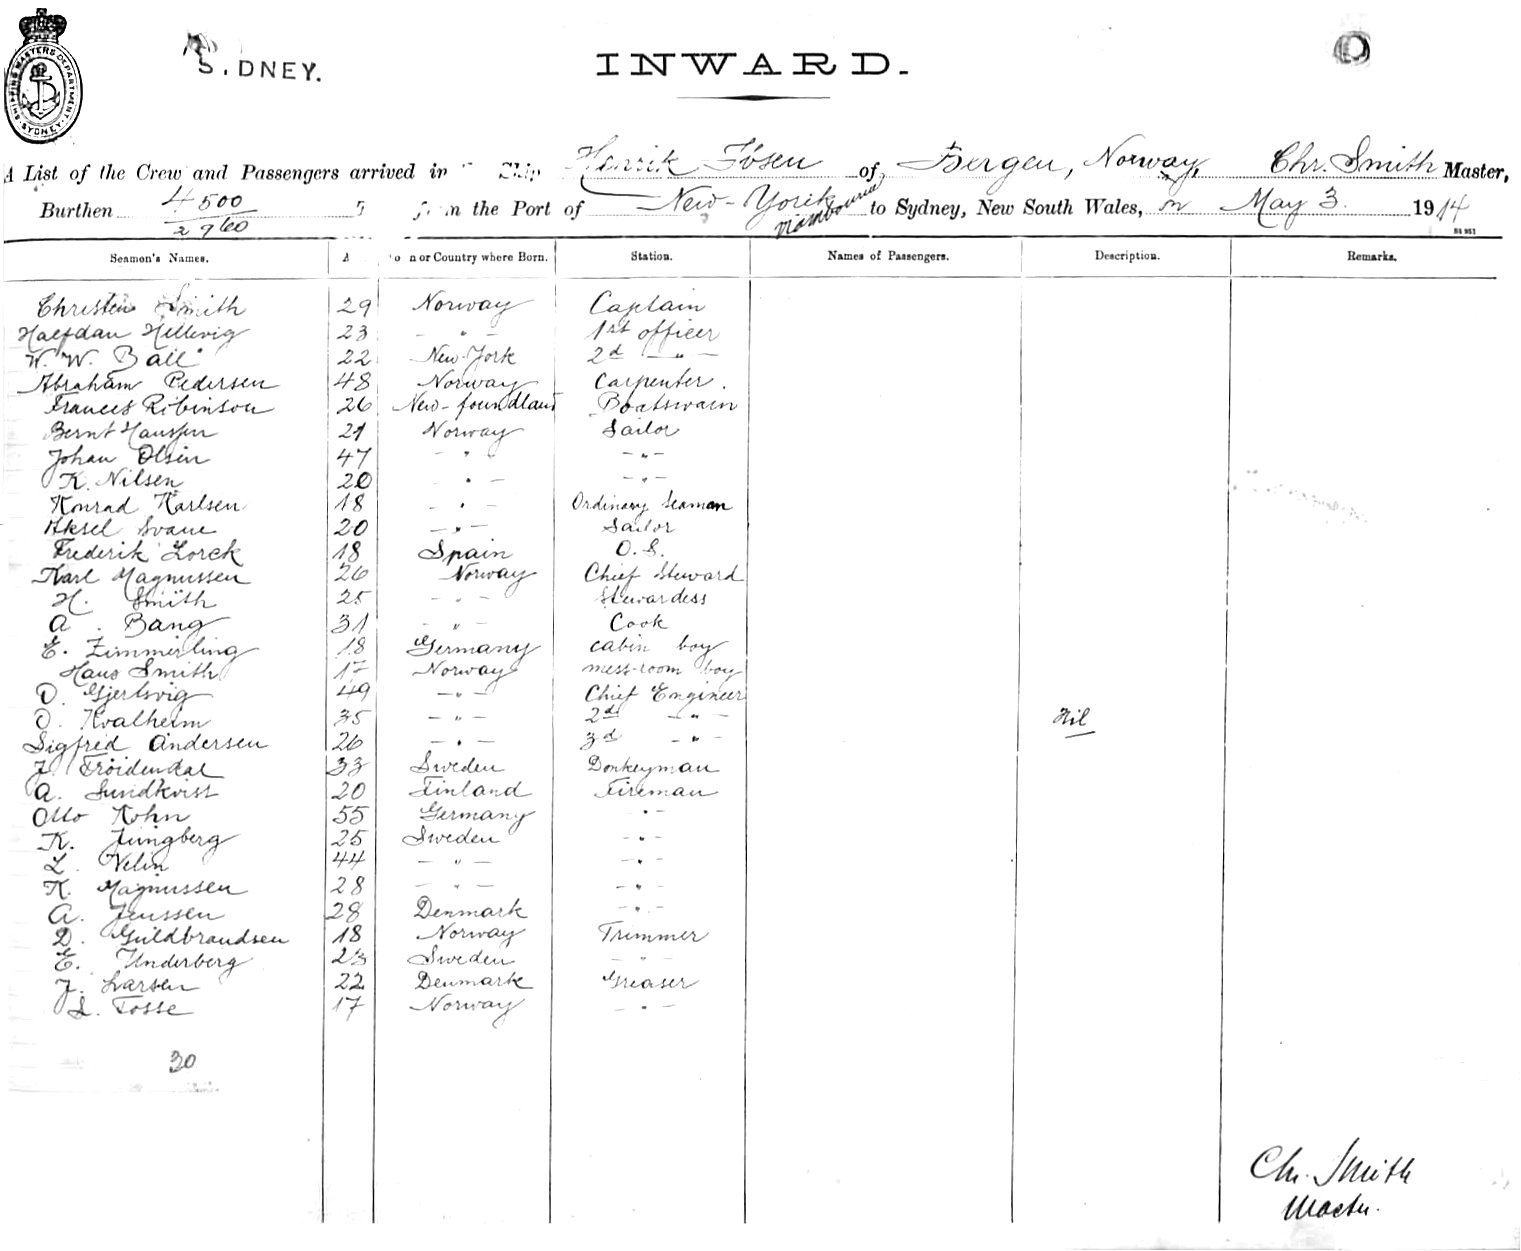 SHIPPING MASTERS DEPARTMENT. SYDNEY
S.DNEY.
INWARD.
A List of the Crew and Passengers arrived in Ship Henrik Ibsen of Bergen, Norway, Chr. Smith Master,
Burthen 4500 from the Port of New-York to Sydney, New South Wales, on May 3. 1914
2960 via Melbourne
Seamen's Names. A n or Country where Born. Station. Names of Passengers. Description. Remarks.
Christen Smith 29 Norway Captain
Halfdan Hellevig 23 - " - 1st officer
W. W. Ball 22 New-York 2d - " -
Abraham Pedersen 48 Norway Carpenter.
Frances Robinson 26 New-foundland Boatswain
Bernt Hanssen 21 Norway Sailor
Johan Olsen 47 - " - - " -
K. Nilsen 20 - " - - " -
Konrad Karlsen 18 - " - Ordinary Seaman
Aksel Svane 20 - " - Sailor
Frederik Lorck 18 Spain O.S.
Karl Magnussen 26 Norway Chief Steward
H. Smith 25 - " - Stewardess
A. Bang 31 - " - Cook
E. Zimmerling 18 Germany cabin boy
Hans Smith 17 Norway mess-room boy
O. Gjertsvig 49 - " - Chief Engineer
O. Kvalheim 35 - " - 2nd - " - Nil
Sigfred Andersen 26 - " - 3d - " -
J. Fröidendal 33 Sweden Donkeyman
A. Sundkvist 20 Finland Fireman
Otto Kohn 55 Germany - " -
K. Jungberg 25 Sweden - " -
L. Velin 44 - " - - " -
K. Magnussen 28 - " - - " -
A. Jenssen 28 Denmark - " -
D. Guldbrandsen 18 Norway Trimmer
E. Underberg 23 Sweden - " -
J. Larsen 22 Denmark Greaser
L. Fosse 17 Norway - " -
30
Chr. Smith
Master.